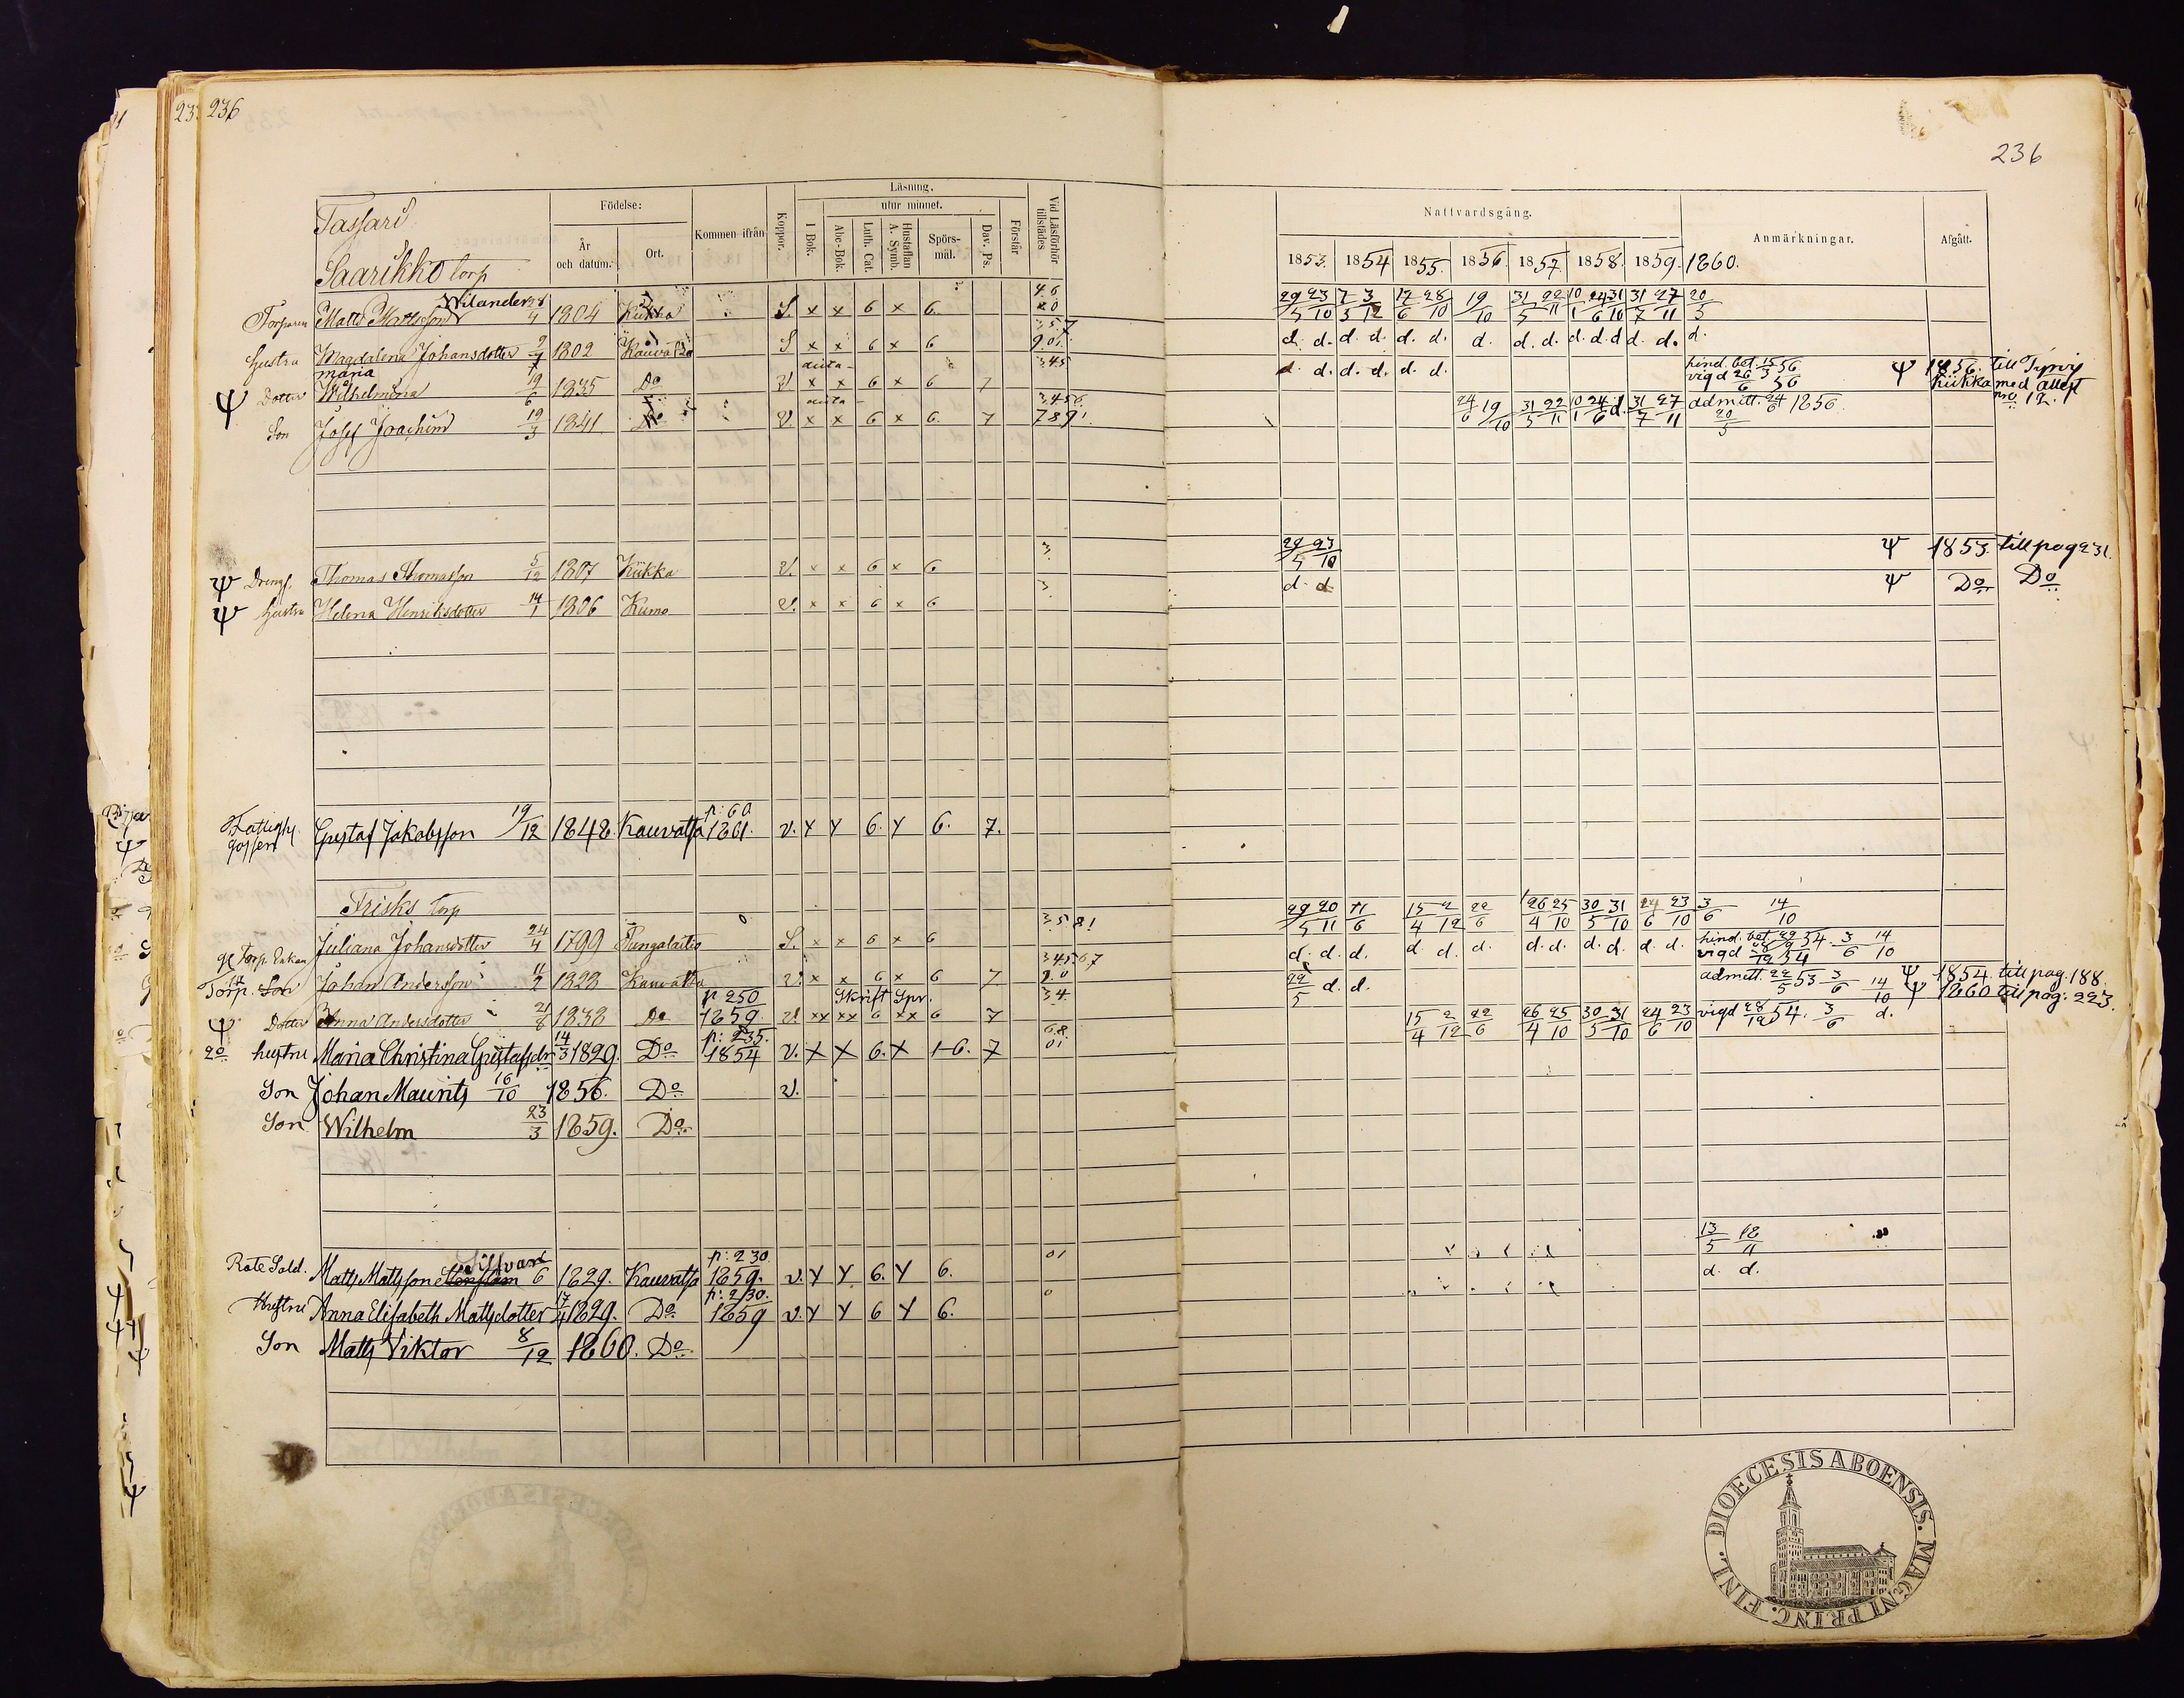 236
236
Tassari
Saarikko torp
Födelse:
År och datum.
Ort.
Kommen ifrån
Koppor.
Läsning.
utur minnet.
I Bok.
Abc-Bok.
Luth. Cat.
Hustaflan A. Symb.
Spörs-mål.
Dav. Ps.
Förstår
Vid Läsförhör tillstädes
Nattvardsgång.
1853. 1854 1855. 1856. 1857. 1858. 1859. 1860.
Anmärkningar.
Afgått.
Torparen Matts Mattsson Wilander 4 1804 Kiikka S. x x 6 x 6.
29/5 23/10 7/5 3/12 17/6 28/10 19/10 31/5 22/11 10/1 24/6 31/10 31/7 27/11 20/5
hustru Magdalena Johansdotter 1802 Kauvatsa S x x 6 x 6
d. d. d. d. d. d. d. d. d. d. d. d. d. d. d.
Ψ Dotter Maria Wilhelmina 19/6 1835 Do V x x 6 x 6 7 345
d. d. d. d. d. d. hind. bet. 15/5 56 vigd 26/6 56 Ψ 1856. till Tyrvis Kiikka med attest no 12.
Son Josef Joachim 19/3 1841. Do V. x x 6 x 6. 7 3456. 789!
24/6 19/10 31/5 22/11 10/1 24/6 d. 31/7 27/11 admitt. 24/6 1856. 20/5
Ψ Drengs. Thomas Thomasson 5/12 1807 Kiikka V. x x 6 x 6 3.
29/5 23/10 Ψ 1853. till pag 231.
Ψ hustru Helena Henriksdotter 14/1 1806 Kumo V. x x 6 x 6 3
d. d. Ψ Do Do
Fattighj. gossen Gustaf Jakobsson 19/12 1848. Kauvatsa p: 60 1861. V. Y Y 6. Y 6. 7.
Frisks torp
gl. Torp. Enkan Juliana Johansdotter 24/4 1799 Pungalaitio S. x x 6 x 6 3581
29/5 20/11 11/6 15/4 2/12 22/6 26/4 25/10 30/5 31/10 24/6 23/10 3/6 14/10
Torp. Son Johan Andersson 11/2 1828 Kauvatsa V. x x 6 x 6 7
d. d. d. d. d. d. d. d. d. d. d. d. hind. bet 29/9 54. vigd 28/12 54 3/6 14/10
Ψ Dotter Anna Andersdotter 21/8 1838 Do p 250 1859. V. xx xx 6 xx 6 7 34 Skrift Spr.
22/5 d. d. admitt. 22/5 53 3/6 14/10 Ψ 1854. till pag. 188. Ψ 1860 till pag: 223.
2o hustru Maria Christina Gustafsdr 14/3 1829. Do p: 235. 1854 V. X X 6. X 1-6. 7
15/4 2/12 22/6 26/4 25/10 30/5 31/10 24/6 23/10 vigd 28/12 54. 3/6 d.
Son Johan Mauritz 16/10 1856. Do V.
Son Wilhelm 23/3 1859. Do
Rote Sold. Matts Mattsson Silfvan 6 1829. Kauvatsa p: 230 1859. V. Y Y 6. Y 6. 01
13/5 18/11
Hustru Anna Elisabeth Mattsdotter 17/4 1829. Do p: 230. 1859 V. Y Y 6 Y 6. 0
d. d.
Son Matts Viktor 8/12 1860. Do
DIOECESIS ABOENSIS. MAGNI PRINC. FINL.